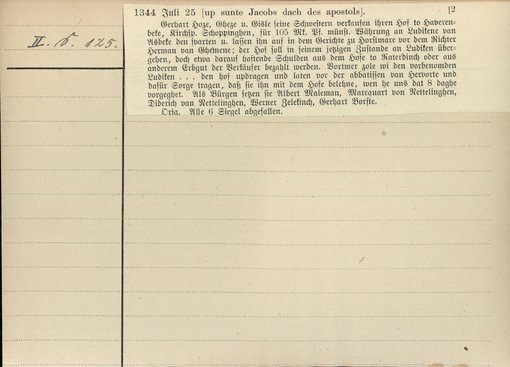 II. d. 125.
1344 Juli 25 [up sunte Jacobs dach des apostols]. [2
Gerhart Hoze, Gheze u. Gisle seine Schwestern verkaufen ihren Hof to Haveren-
beke, Kirchsp. Schoppinghen, für 105 Mk. Pf. münst. Währung an Ludiken van
Asbeke den swarten u. lassen ihn auf in dem Gerichte zu Horstmare vor dem Richter
Herman van Ghemene; der Hof soll in seinem jetzigen Zustande an Ludiken über-
gehen, doch etwa darauf haftende Schulden aus dem Hofe to Raterdinch oder aus
anderem Erbgut der Verkäufer bezahlt werden. Vortmer zole wi den vorbenomden
Ludiken . . . den hof updragen und laten vor der abbatissen van Hervorte und
dafür Sorge tragen, daß sie ihn mit dem Hofe belehne, wen he uns dat 8 daghe
vorzeghet. Als Bürgen setzen sie Albert Maleman, Marcquart van Nettelinghen,
Diderich van Nettelinghen, Werner Zelekinch, Gerhart Vorste.
Orig. Alle 6 Siegel abgefallen.